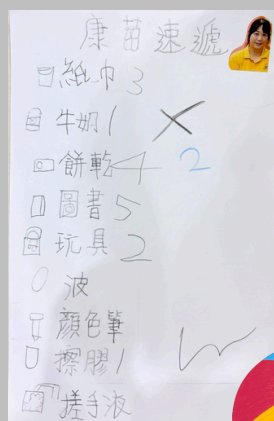 康苗速遞
紙巾3
牛奶1 X
餅乾4 2
圖書5
玩具2
波
顏色筆
擦膠1
搓手液